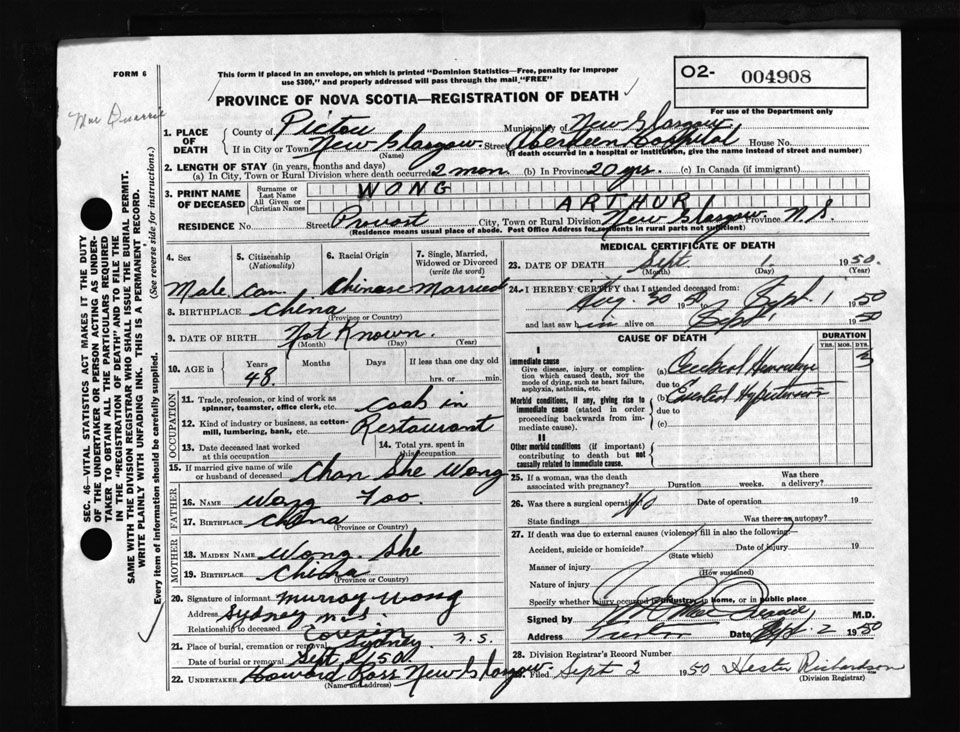 FORM 6
This form if placed in an envelope, on which is printed "Dominion Statistics—Free, penalty for improper
use $300," and properly addressed will pass through the mail "FREE"
O2- 004908
PROVINCE OF NOVA SCOTIA—REGISTRATION OF DEATH
For use of the Department only
1. PLACE OF DEATH
County of Pictou Municipality of New Glasgow
If in City or Town New Glasgow (Name) Street Aberdeen Hospital House No.
(If death occurred in a hospital or institution, give the name instead of street and number)
2. LENGTH OF STAY (in years, months and days)
(a) In City, Town or Rural Division where death occurred 2 mon. (b) In Province 20 yrs. (c) In Canada (if immigrant)
3. PRINT NAME OF DECEASED
Surname or Last Name WONG
All Given or Christian Names ARTHUR
RESIDENCE No. Street Provost City, Town or Rural Division New Glasgow Province N.S.
(Residence means usual place of abode. Post Office Address for residents in rural parts not sufficient)
4. Sex 5. Citizenship (Nationality) 6. Racial Origin 7. Single, Married, Widowed or Divorced (write the word)
Male Can. Chinese Married
8. BIRTHPLACE China (Province or Country)
9. DATE OF BIRTH Not Known. (Month) (Day) (Year)
10. AGE in Years Months Days If less than one day old
48. hrs. or min.
OCCUPATION
11. Trade, profession, or kind of work as spinner, teamster, office clerk, etc. Cook in
12. Kind of industry or business, as cotton-mill, lumbering, bank, etc. Restaurant
13. Date deceased last worked at this occupation 14. Total yrs. spent in this occupation
15. If married give name of wife or husband of deceased Chan She Wong
FATHER
16. NAME Wong Foo.
17. BIRTHPLACE China (Province or Country)
MOTHER
18. MAIDEN NAME Wong She
19. BIRTHPLACE China (Province or Country)
20. Signature of informant Murray Wong
Address Sydney N.S
Relationship to deceased Cousin
21. Place of burial, cremation or removal Sydney N.S.
Date of burial or removal
22. UNDERTAKER Howard Ross New Glasgow. (Name and address)
MEDICAL CERTIFICATE OF DEATH
23. DATE OF DEATH Sept. 1. 1950. (Month) (Day) (Year)
24. I HEREBY CERTIFY that I attended deceased from:
Aug. 30 1950 to Sept. 1 1950
and last saw him alive on Sept 1 1950
CAUSE OF DEATH DURATION
YRS. MOS. DYS.
I
Immediate cause
Give disease, injury or complication which caused death, not the mode of dying, such as heart failure, asphyxia, asthenia, etc.
(a) Cerebral Hemorrhage 3
due to
Morbid conditions, if any, giving rise to immediate cause (stated in order proceeding backwards from immediate cause).
(b) Essential Hypertension
due to
(c)
II
Other morbid conditions (if important) contributing to death but not causally related to immediate cause.
25. If a woman, was the death associated with pregnancy? Duration weeks. Was there a delivery?
26. Was there a surgical operation? No Date of operation 19
State findings Was there an autopsy?
27. If death was due to external causes (violence) fill in also the following:
Accident, suicide or homicide? (State which) Date of injury 19
Manner of injury (How sustained)
Nature of injury
Specify whether injury occurred in industry, in home, or in public place
Signed by M.D.
Address Trenton Date Sept. 2 1950
28. Division Registrar's Record Number
29. Filed Sept 2 1950 Hester Richardson
(Division Registrar)
SEC. 46—VITAL STATISTICS ACT MAKES IT THE DUTY
OF THE UNDERTAKER OR PERSON ACTING AS UNDER-
TAKER TO OBTAIN ALL THE PARTICULARS REQUIRED
IN THE "REGISTRATION OF DEATH" AND TO FILE THE
SAME WITH THE DIVISION REGISTRAR WHO SHALL ISSUE THE BURIAL PERMIT.
WRITE PLAINLY WITH UNFADING INK. THIS IS A PERMANENT RECORD.
Every item of information should be carefully supplied. (See reverse side for instructions.)